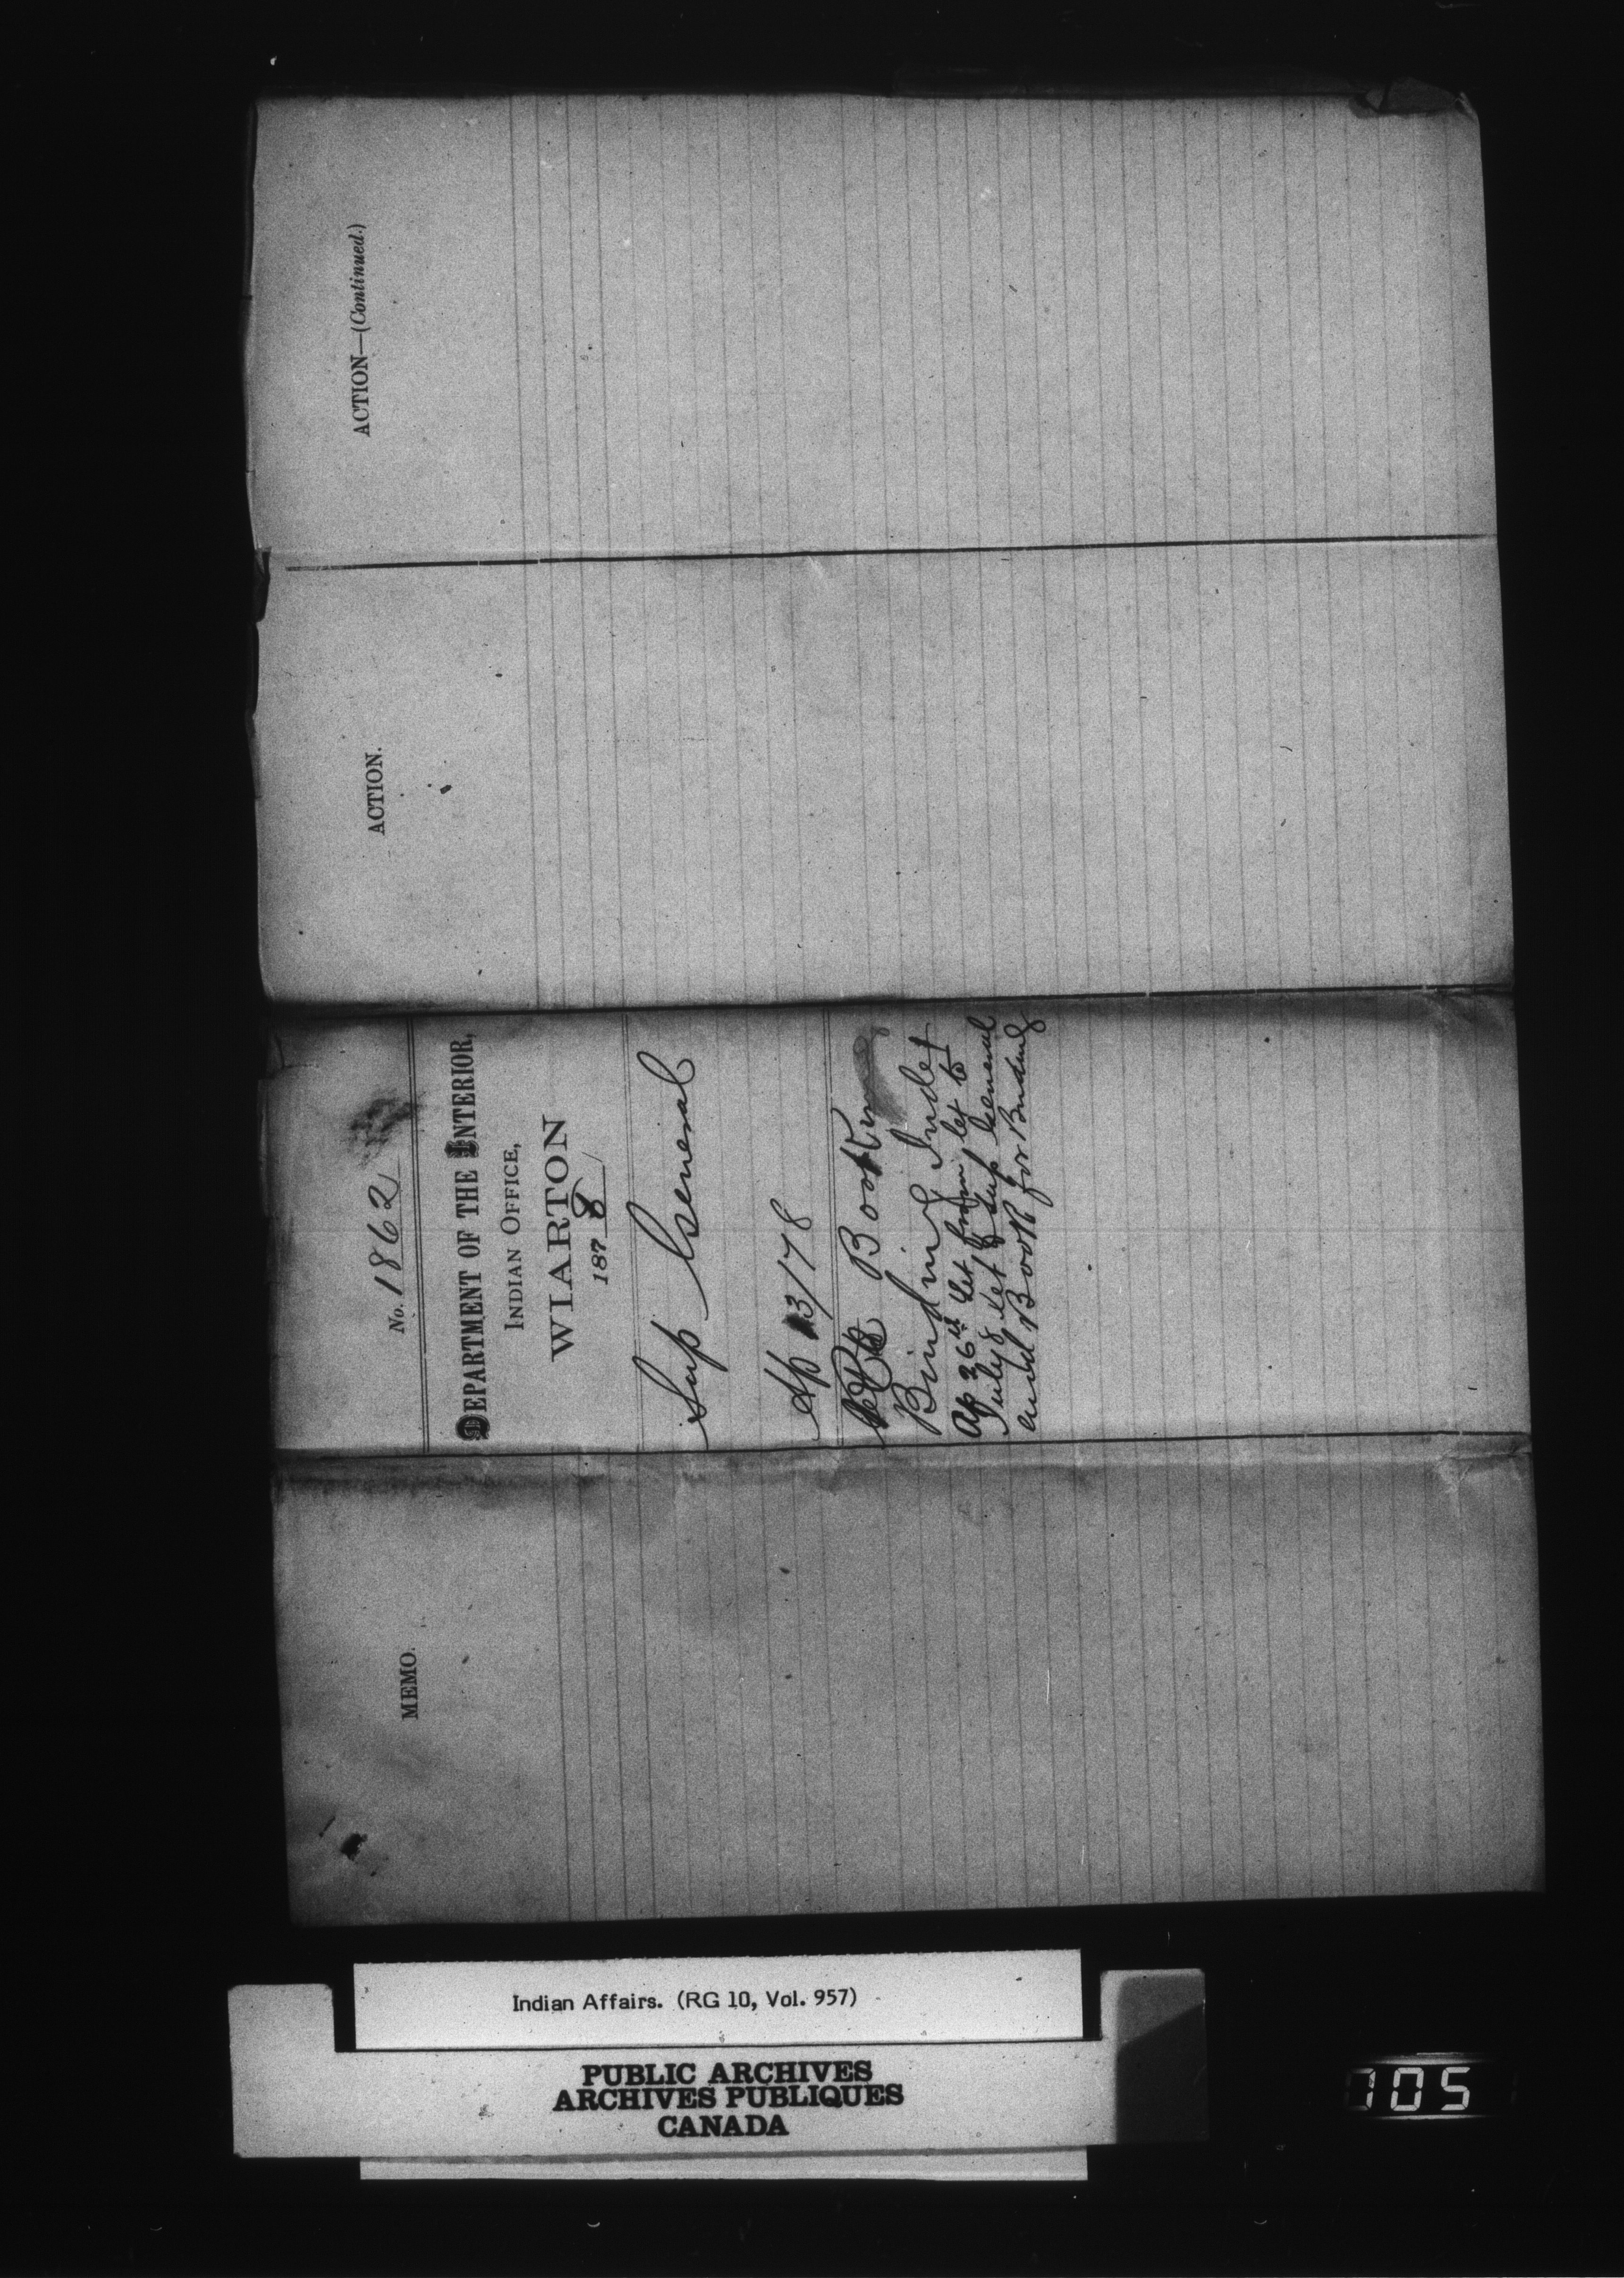 No. 1862
DEPARTMENT OF THE INTERIOR,
INDIAN OFFICE,
WIARTON
1878
Sup General
Ap 3/78
Book
Binding Index
Ap 26th let from let to
July 8 let f Sup General
and Book for Binding
MEMO.
ACTION.
ACTION—(Continued.)
Indian Affairs. (RG 10, Vol. 957)
PUBLIC ARCHIVES
ARCHIVES PUBLIQUES
CANADA
705